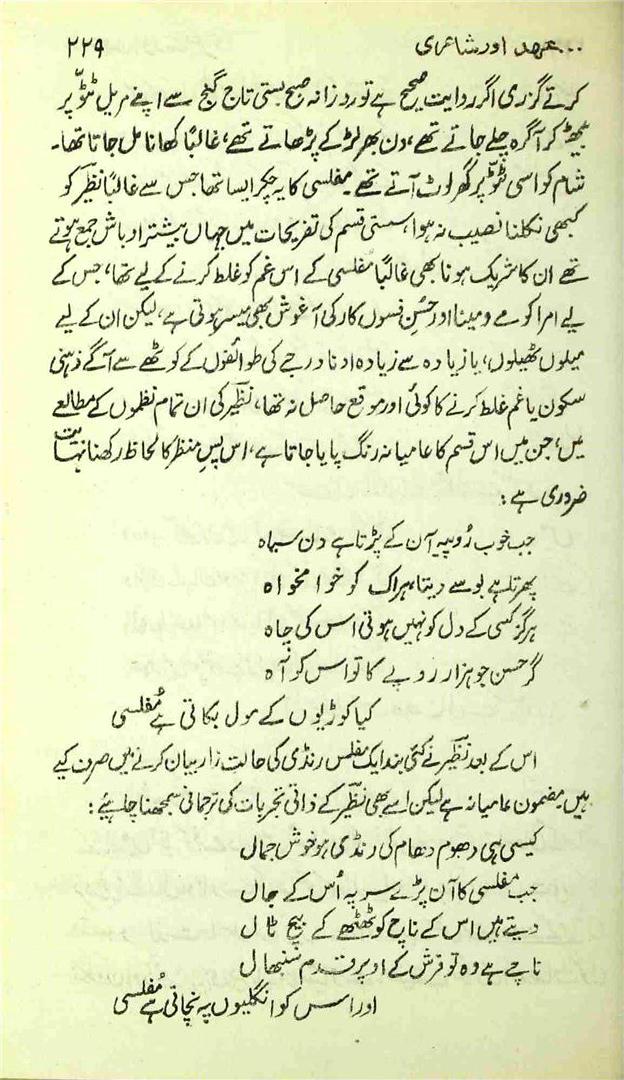 ...عہد اور شاعری ۲۲۹
کرتے گزری اگر روایت صحیح ہے تو روزانہ صبح بستی تاج گنج سے اپنے مریل ٹٹّو پر
بیٹھ کر آگرہ چلے جاتے تھے، دن بھر لڑکے پڑھاتے تھے، غالباً کھانا مل جاتا تھا۔
شام کو اسی ٹٹّو پر گھر لوٹ آتے تھے مفلسی کا یہ چکر ایسا تھا جس سے غالباً نظیر کو
کبھی نکلنا نصیب نہ ہوا، سستی قسم کی تفریحات میں جہاں بیشتر اوباش جمع ہوتے
تھے ان کا شریک ہونا بھی غالباً مفلسی کے اس غم کو غلط کرنے کے لیے تھا، جس کے
لیے امرا کو مے و مینا اور حُسنِ فسوں کار کی آغوش بھی میسر ہوتی ہے، لیکن ان کے لیے
میلوں ٹھیلوں، یا زیادہ سے زیادہ ادنا درجے کی طوائفوں کے کوٹھے سے آگے ذہنی
سکون یا غم غلط کرنے کا کوئی اور موقع حاصل نہ تھا، نظیر کی ان تمام نظموں کے مطالعے
میں، جن میں اس قسم کا عامیانہ رنگ پایا جاتا ہے، اس پس منظر کا لحاظ رکھنا نہایت
ضروری ہے:
جب خوب رُو پہ آن کے پڑتا ہے دن سیاہ
پھرتا ہے بوسے دیتا ہر اک کو خوامخواہ
ہرگز کسی کے دل کو نہیں ہوتی اس کی چاہ
گر حسن ہو ہزار روپے کا تو اس کو آہ
کیا کوڑیوں کے مول بکاتی ہے مُفلسی
اس کے بعد نظیر نے کئی بند ایک مفلس رنڈی کی حالت زار بیان کرنے میں صرف کیے
ہیں مضمون عامیانہ ہے لیکن اسے بھی نظیر کے ذاتی تجربات کی ترجمانی سمجھنا چاہیے:
کیسی ہی دھوم دھام کی رنڈی ہو خوش جمال
جب مفلسی کا آن پڑے سر پہ اُس کے جال
دیتے ہیں اس کے ناچ کو ٹھٹھے کے بیچ ٹال
ناچے ہے وہ تو فرش کے اوپر قدم سنبھال
اور اس کو انگلیوں پہ نچاتی ہے مُفلسی